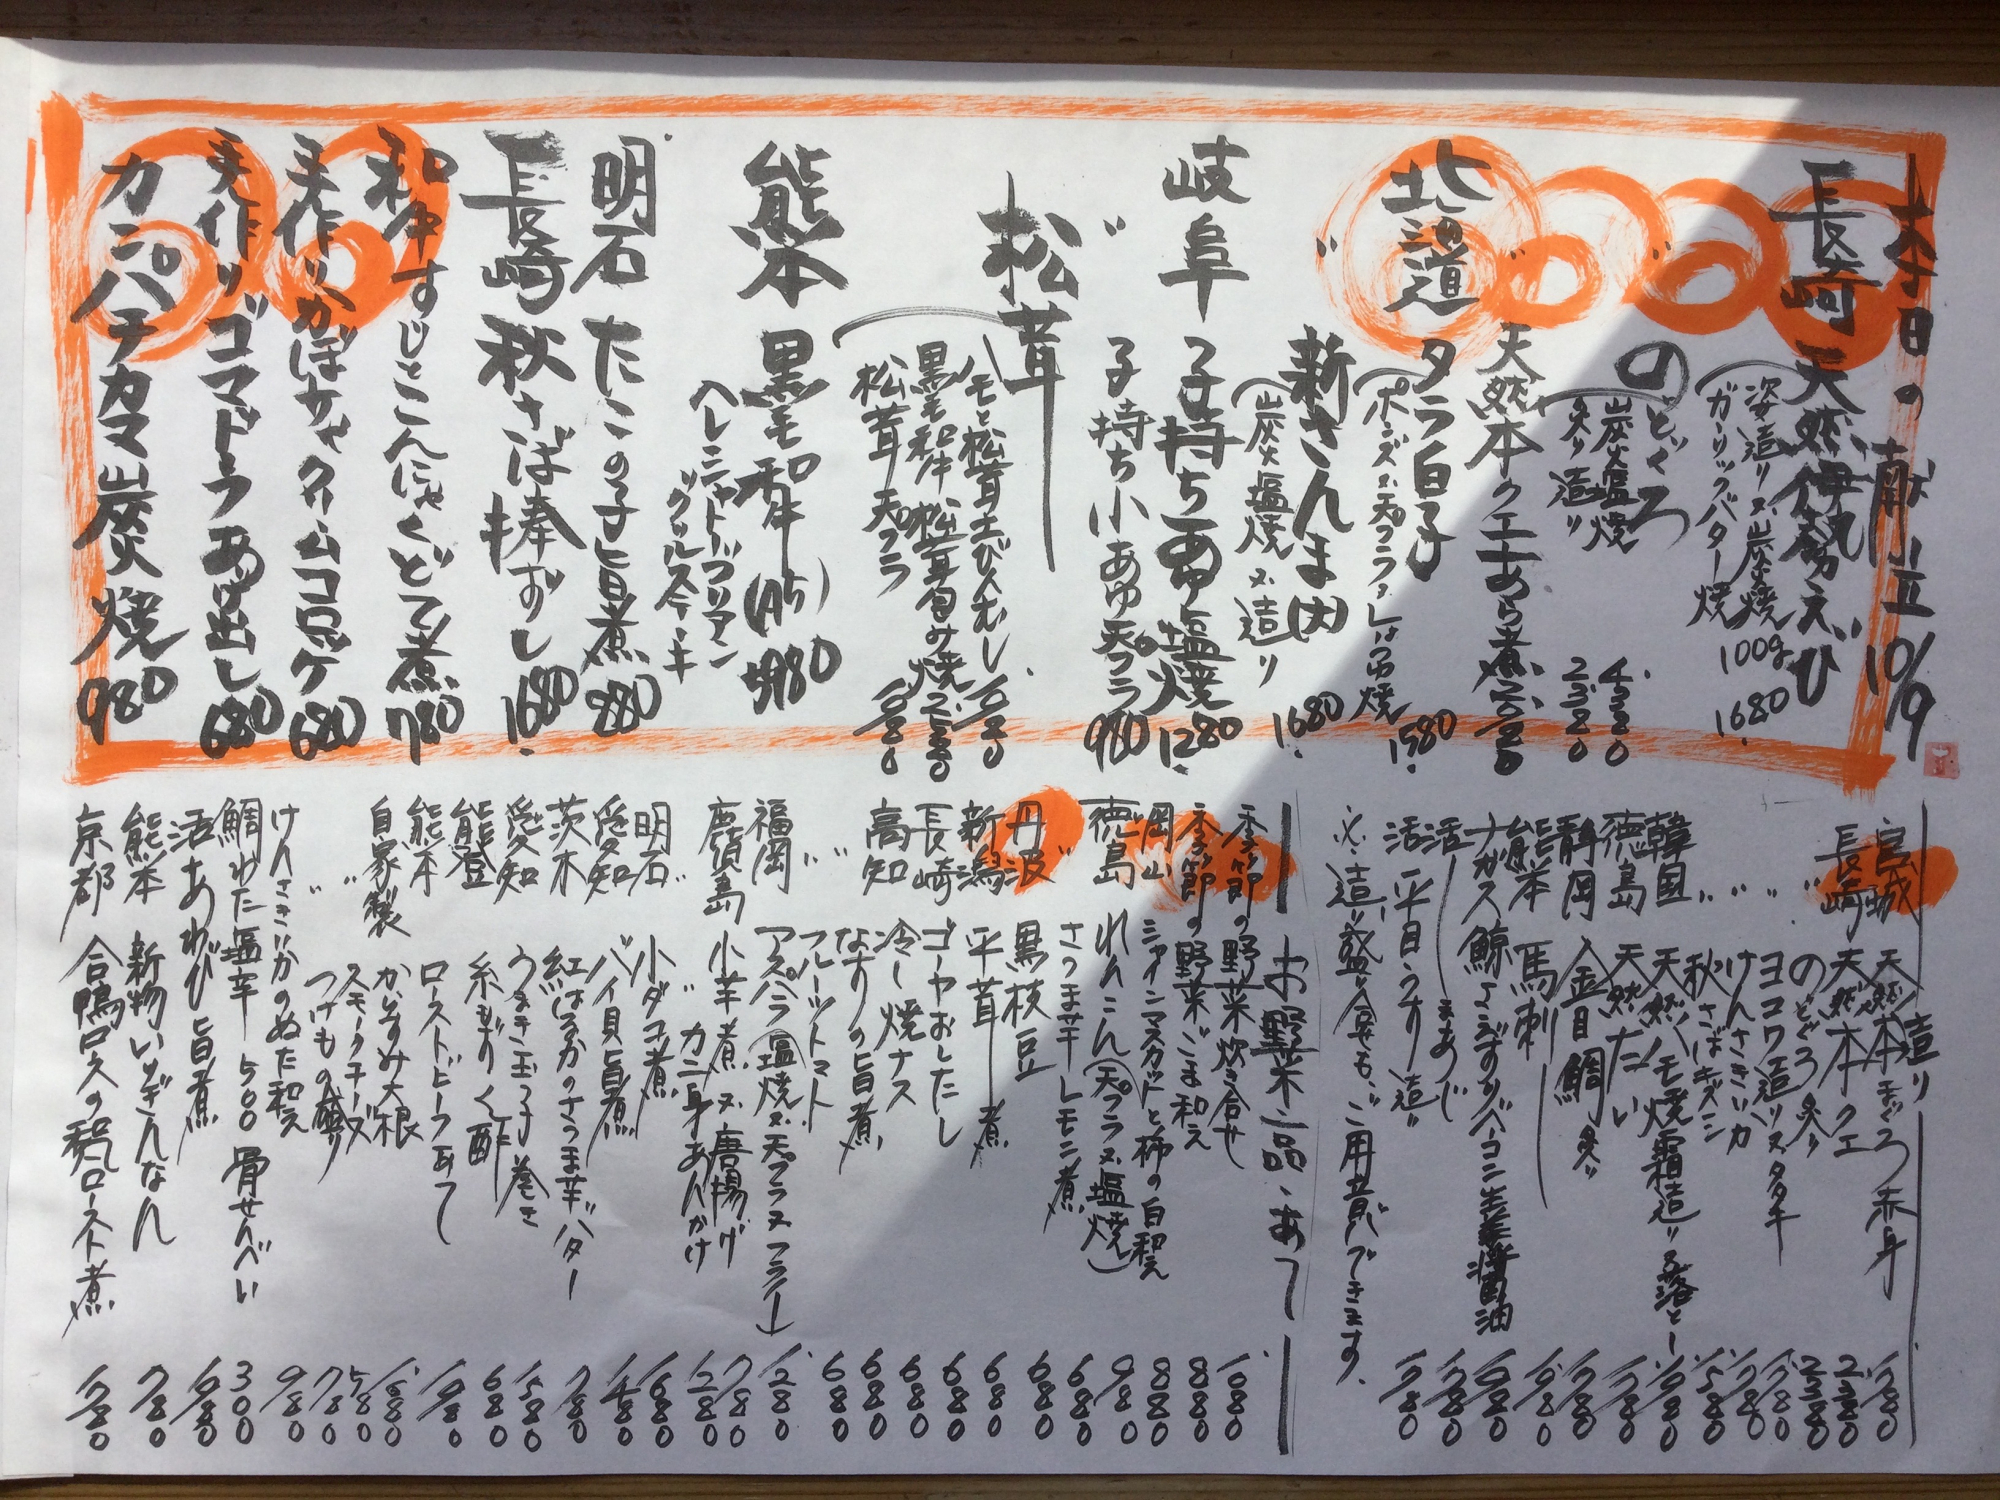 本日の献立 10/9
長崎 天然伊勢えび
姿造り又炭火焼 100g
ガーリックバター焼 1680.
〃 のどぐろ
炭火塩焼 4380
炙り造り 2380
〃 天然本クエあら煮
北海道 タラ白子
ポンズ又天プラ又しょう油焼 1580.
〃 新さんま
炭火塩焼又造り 1680.
岐阜 子持ちあゆ塩焼 1280.
〃 子持ち小あゆ天プラ 980
松茸
ハモと松茸土びんむし
黒毛和牛松茸包み焼
松茸天プラ
熊本 黒毛和牛(A5)
ヘレシャトーブリアン
明石 たこの子旨煮 880
長崎 秋さば棒ずし 1680.
和牛すじとこんにゃくどて煮 780
手作りかぼちゃクリームコロッケ 680
手作りゴマドーフあげ出し 680
カンパチカマ炭火焼 980
造り
宮城 天然本まぐろ赤身 1780
長崎 天然本クエ 2380
〃 のどぐろ炙り 2380
〃 ヨコワ造り又タタキ 1780
〃 けんさきいか 1780
〃 秋さばキズシ 1580
韓国 天然ハモ焼霜造り又落とし 1980
徳島 天然たい 1780
静岡 金目鯛炙り 1780
熊本 馬刺 1980
ナガス鯨 ベーコン生姜醤油 1980
活 あじ 1780
活 平目うす造り 1780
※造り盛り合せも、ご用意できます。
お野菜・一品・あて
季節の野菜炊き合せ 1080
季節の野菜ごま和え 880
岡山 シャインマスカットと柿の白和え 880
徳島 れんこん(天プラ又塩焼) 980
〃 さつま芋レモン煮 680
丹波 黒枝豆 680
新潟 平茸煮 680
長崎 ゴーヤおしたし 680
高知 冷し焼ナス 680
〃 なすの旨煮 680
〃 フルーツトマト 680
福岡 アスパラ(塩焼又天プラ又フライ) 1280
鹿児島 小芋煮又唐揚げ 780
〃 カニ身あんかけ 1280
明石 小ダコ煮 1680
愛知 バイ貝旨煮 1480
茨木 紅はるかのさつま芋バター 780
愛知 うまき玉子巻き 1580
能登 糸もずく酢 680
熊本 ローストビーフあて 1980
自家製 からすみ大根 1580
〃 スモークチーズ 580
〃 つけもの盛り 780
けんさきいかのぬた和え 980
鯛わた塩辛 500 骨せんべい 300
活あわび旨煮 1980
熊本 新物いちぎんなん 780
京都 合鴨ロースの和風ロースト煮 1780